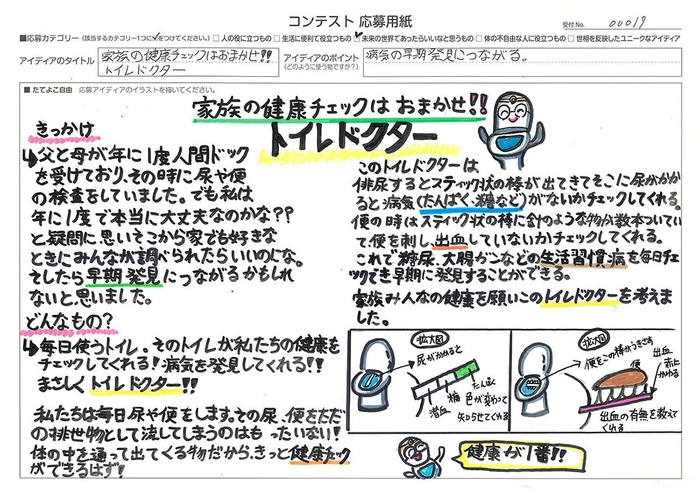 コンテスト 応募用紙
受付No. 00019
■応募カテゴリー (該当するカテゴリー1つに✓をつけてください。) □ 人の役に立つもの □ 生活に便利で役立つもの □ 未来の世界であったらいいなと思うもの □ 体の不自由な人に役立つもの □ 世相を反映したユニークなアイディア
アイディアのタイトル
家族の健康チェックはおまかせ!!
トイレドクター
アイディアのポイント
(どのように使う物ですか?)
病気の早期発見につながる。
■ たてよこ自由 応募アイディアのイラストを描いてください。
家族の健康チェックは おまかせ!!
トイレドクター
きっかけ
父と母が年に1度人間ドック
を受けており、その時に尿や便
の検査をしていました。でも私は
年に1度で本当に大丈夫なのかな??
と疑問に思いそこから家でも好きな
ときにみんなが調べられたらいいのにな。
そしたら早期発見につながるかもしれ
ないと思いました。
どんなもの?
毎日使うトイレ。そのトイレが私たちの健康を
チェックしてくれる!病気を発見してくれる!!
まさしくトイレドクター!!
私たちは毎日尿や便をします。その尿、便をただ
の排世物として流してしまうのはもったいない!
体の中を通って出てくる物だから、きっと健康チェック
ができるはず!
このトイレドクターは
排尿するとスティック状の棒が出てきてそこに尿がかか
ると病気(たんぱく、糖など)がないかチェックしてくれる。
便の時はスティック状の棒に針のような物が数本ついてい
て便を刺し、出血していないかチェックしてくれる。
これで糖尿、大腸ガンなどの生活習慣病を毎日チェ
ックでき早期に発見することができる。
家族みんなの健康を願いこのトイレドクターを考えま
した。
拡大図
尿がかかると
たんぱく
糖
潜血
色が変わって
知らせてくれる
拡大図
便をこの棒がうきさす
便
出血
赤に
かわる
出血の有無を教えて
くれる
健康が1番!!